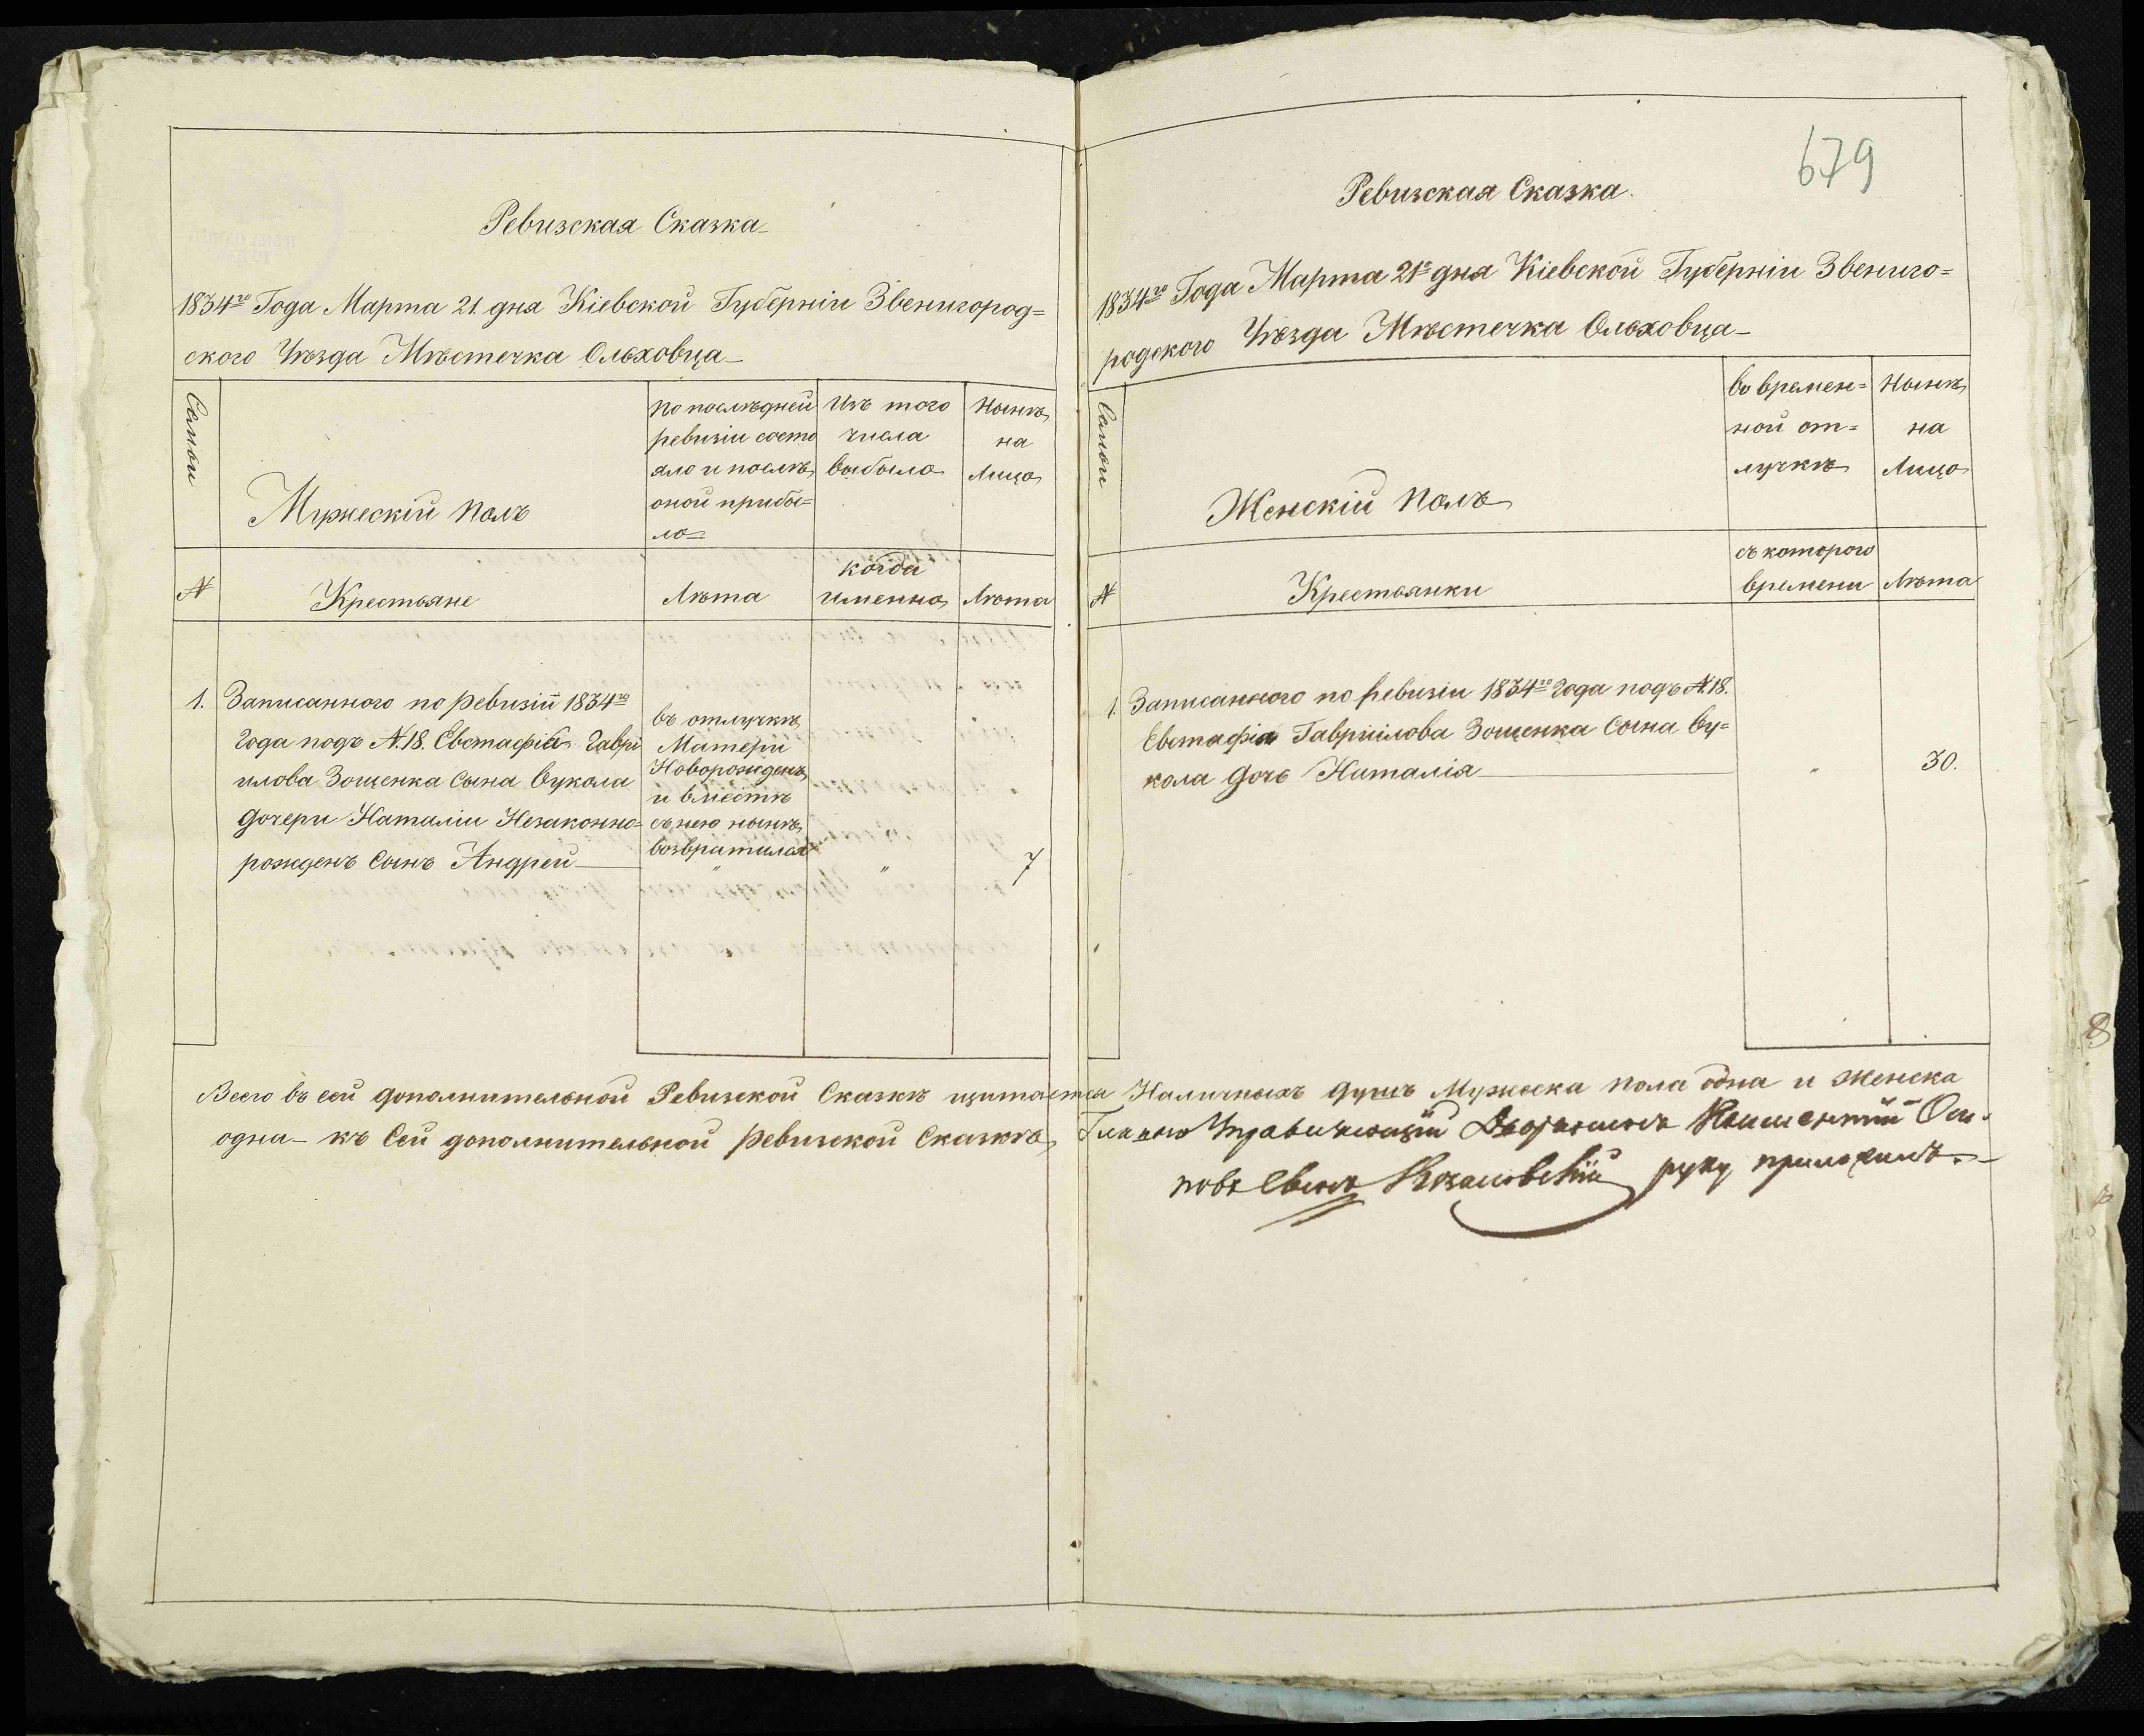 Ревизская Сказка
1834го Года Марта 21 дня Кіевской Губерніи Звенигород=
ского Уѣзда Мѣстечка Ольховца
Семьи
Мужескій полъ
По послѣдней
ревизіи состо
яло и послѣ
оной прибы=
ло
Изъ того
числа
выбыло
Нынѣ
на
Лицо
№
Крестьяне
Лѣта
когда
именно
Лѣта
1.
Записанного по ревизіи 1834го
Года подъ №.18. Евстафія Гаври
илова Зощенка Сына Вукола
дочери Наталіи Незаконно=
рожденъ Сынъ Андрей
въ отлучкѣ
Матери
Новорожденъ
и вмѣстѣ
съ нею нынѣ
возвратился
"
"
7
679
Ревизская Сказка
1834го Года Марта 21го дня Кіевской Губерніи Звениго=
родского Уѣзда Мѣстечка Ольховца
Семьи
Женскій полъ
Во времен=
ной от=
лучкѣ
Нынѣ
на
Лицо
№
Крестьянки
съ которого
времени
Лѣта
1.
Записанного по ревизіи 1834го Года подъ №.18.
Евстафія Гавриилова Зощенка Сына Ву=
кола дочь Наталія
"
30.
Всего въ сей дополнительной Ревизской Сказкѣ щитается Наличныхъ душъ Мужеска пола одна и женска
одна къ Сей дополнительной ревизской Сказкѣ Главно Управляющій Дворянинъ
руку приложилъ.